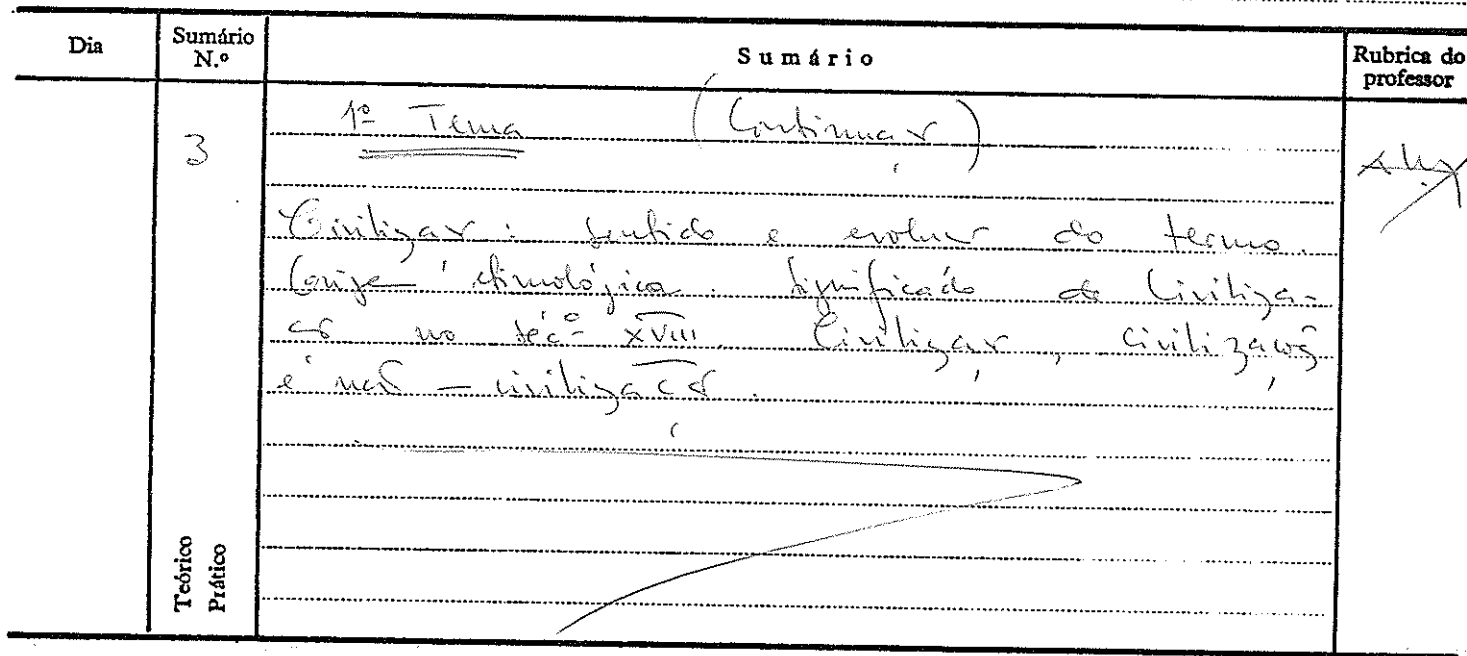 Dia
Sumário N.º
Sumário
Rubrica do professor
3
1º Tema (Continuação)
Civilização: sentido e evolução do termo.
Origem etimológica. Significado de Civiliza-
ção no séc.º XVIII. Civilização, civilizações
e não-civilização.
Teórico
Prático